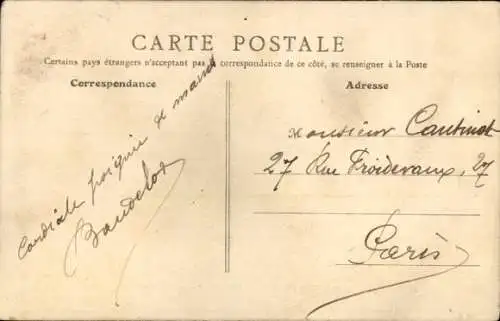 CARTE POSTALE
Certains pays étrangers n'acceptant pas de correspondance de ce côté, se renseigner à la Poste
Correspondance
Adresse
Cordiale poignée de main
Baudelot
Monsieur Cautinot
27 Rue Froidevaux, 27
Paris